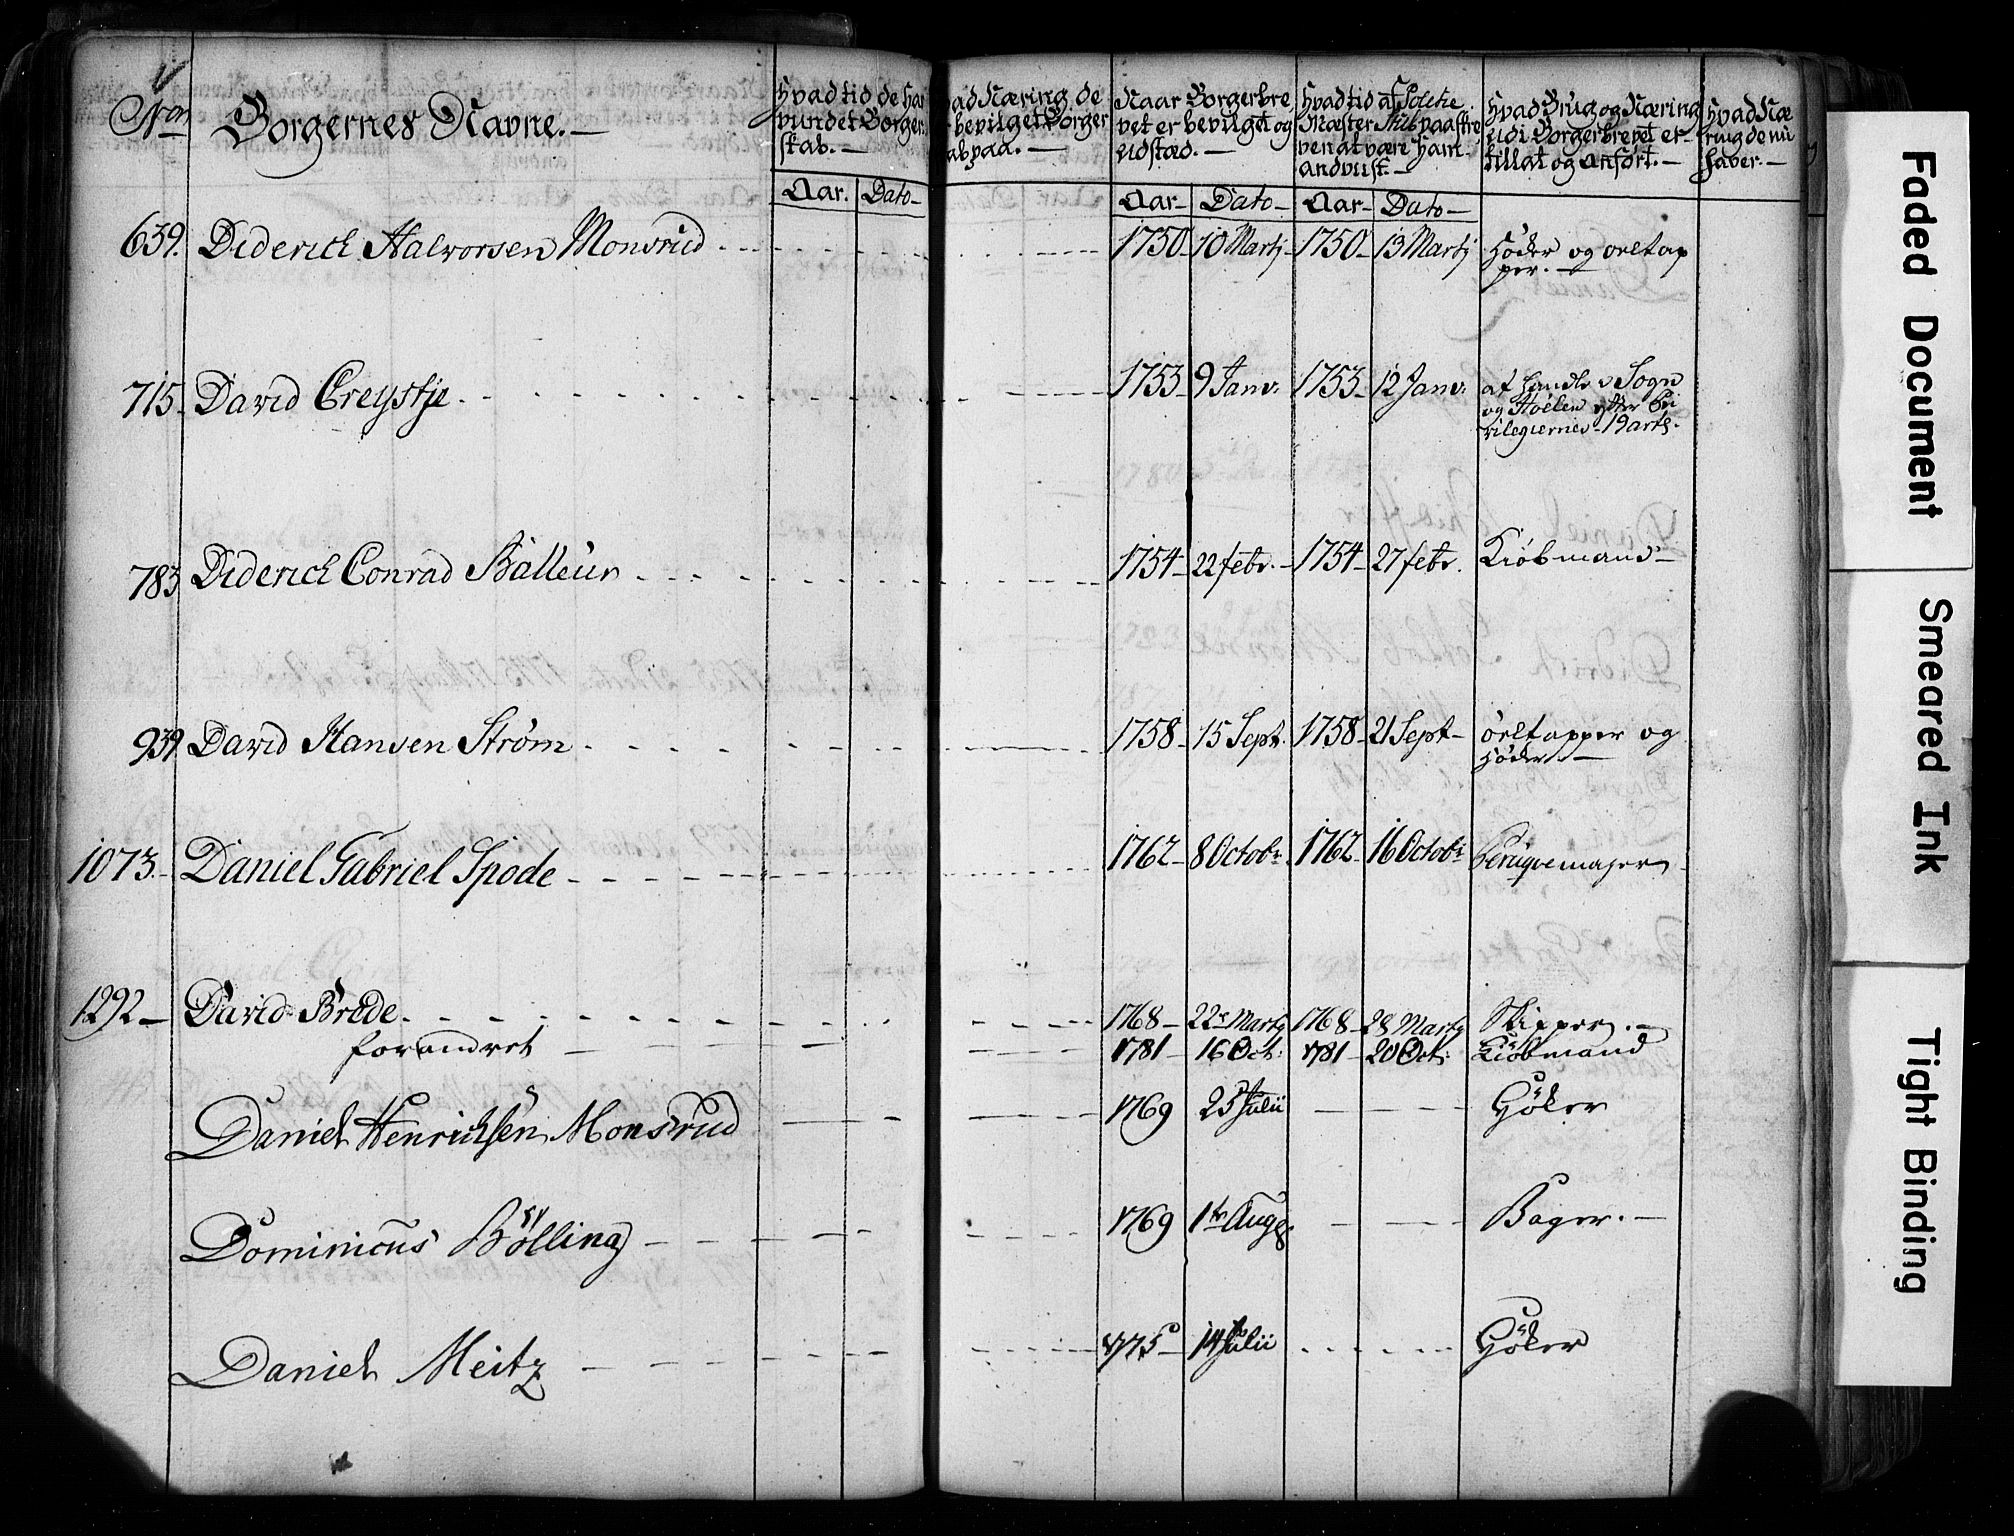 No.
Borgernes Navne. —
Hvad tid de har
vundet Borger
skab. —
Aar. Dato —
ad Næring de
bevilget Borger
ab paa. —
Naar Borgerbre
vet er bevilget og
udstæd. —
Aar — Dato —
Hvad tid af Politie
Mæster
ven at være ham
andviist. —
Aar — Dato —
Hvad Brug og Næring
udi Borgerbrevet er
tillat og anført. —
Hvad Næ
ring de nu
haver. —
639. Diderich Halvorsen Monsrud 1750 — 10 Martj — 1750 — 13 Martj Höcker og öeltap
per. —
715. David Creystje 1753 — 9 Janv. 1753 — 12 Janv. at handle i Sogn
og Hoelen efter Pri
vilegiernes — 19 art
783 Diderich Conrad Bålleür 1754 — 22 febr. — 1754 — 27 febr. Kiöbmand —
939. David Hansen Ström 1758 — 15 Sept. 1758 — 21 Sept — öeltapper og
Höcker. —
1073. Daniel Gabriel Spode 1762 — 8 Octobr. 1762 — 16 Octobr Peruqvemager
1292 — David Brede 1768 — 22 Martj 1768 — 28 Martj Skipper. —
forandret — 1781 — 16 Oct: 1781 — 20 Oct: Kiöbmand
Daniel Henrichsen Monsrud 1769 25 Julii Höker
Dominicus Bölling 1769 1te Aug. Bager. —
Daniel Meitz 1775 — 14 Julii Höker
Faded Document
Smeared Ink
Tight Binding